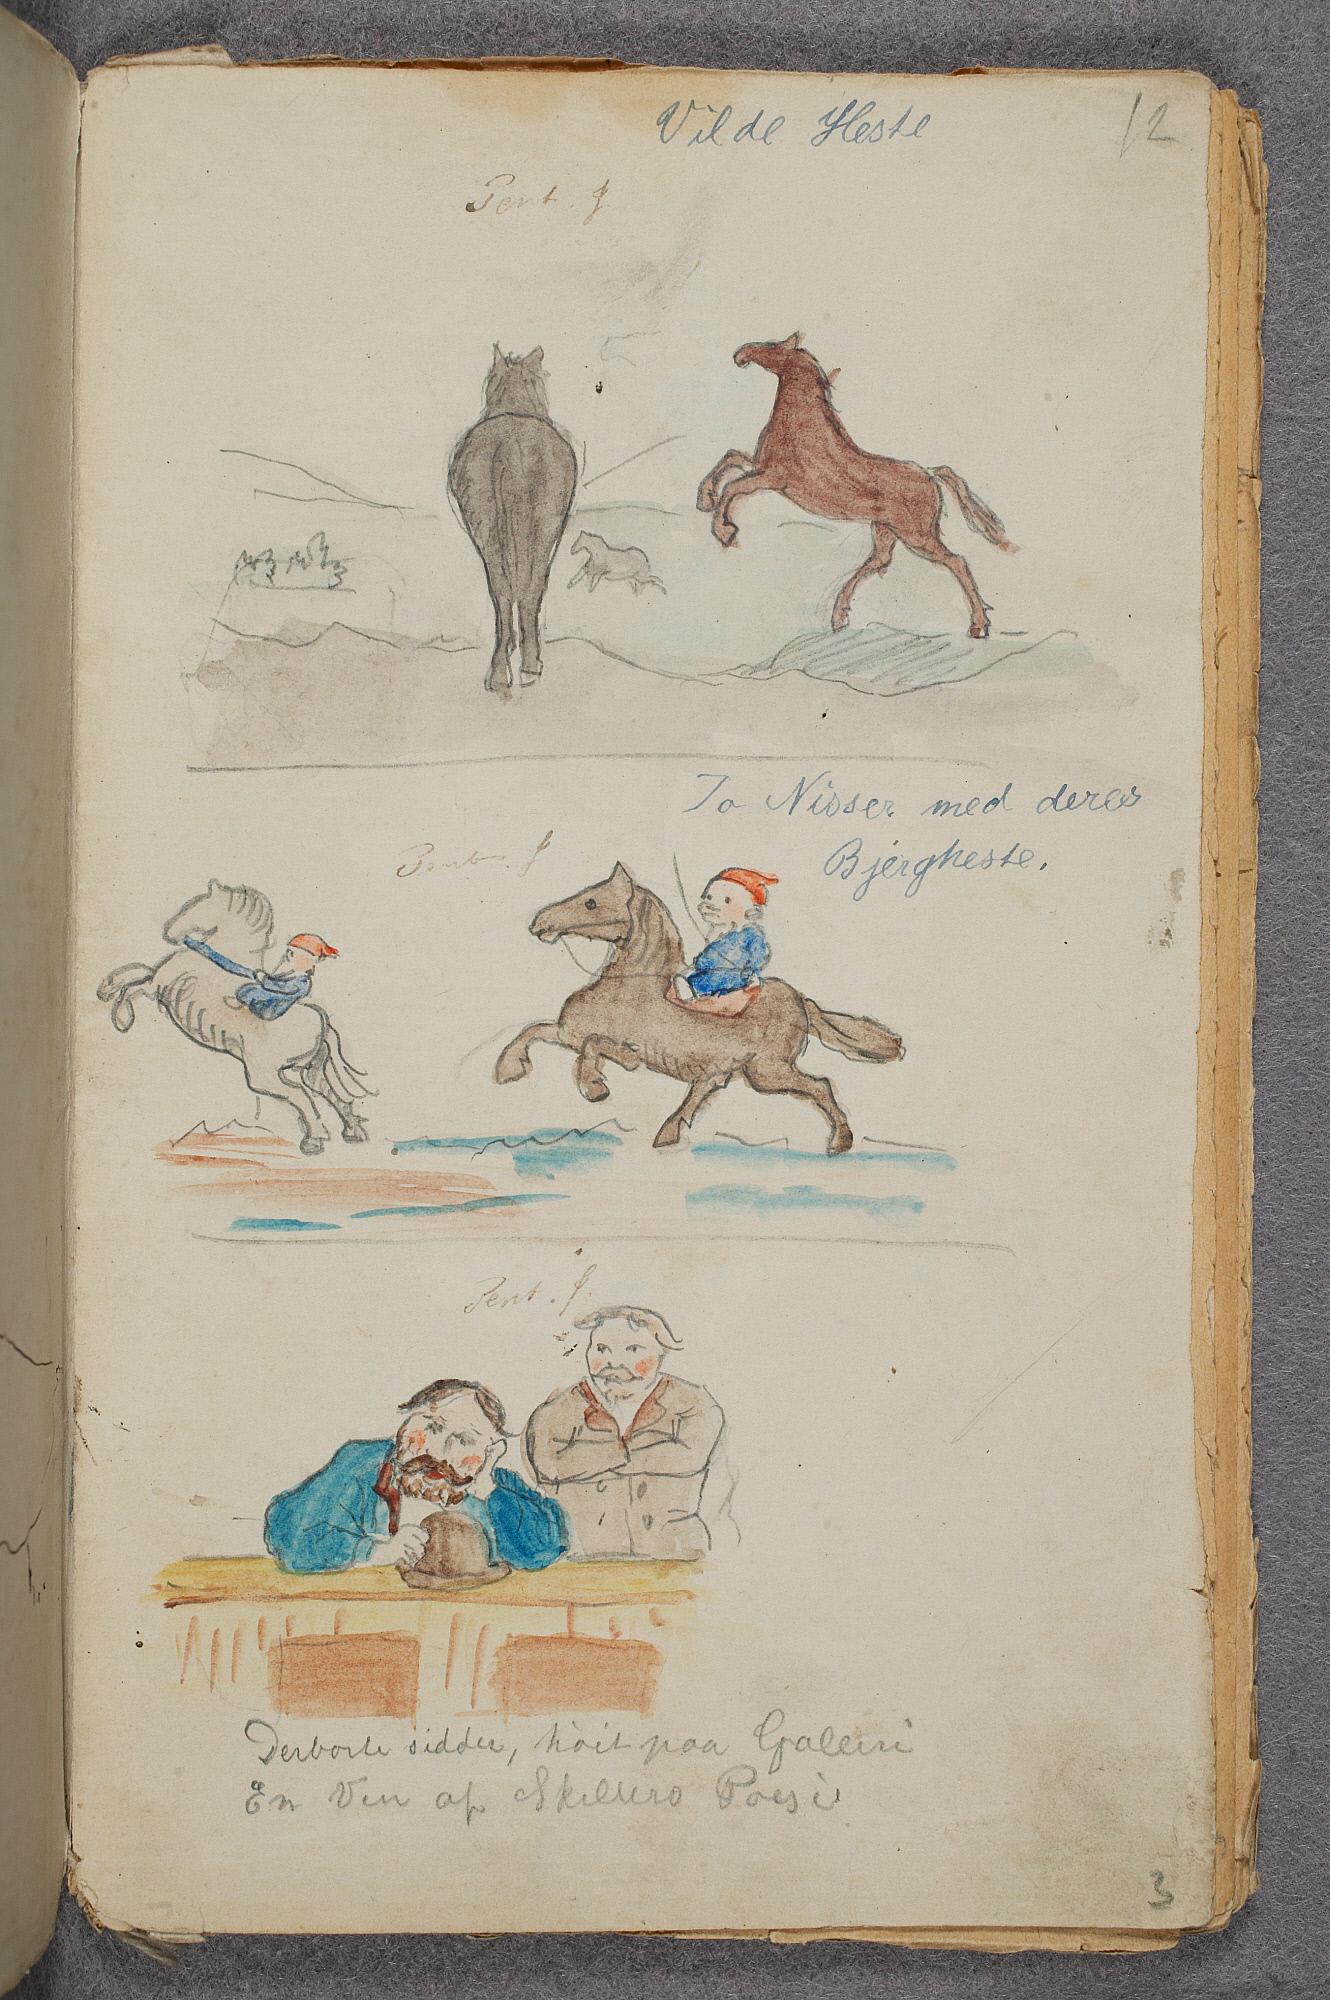 Vilde Heste
12
Pent. J
To Nisser med deres
Bjergheste.
Pent. J
Pent. J.
Derborte sidder, höit paa Galleri
En Ven af Skillers Poesi
3